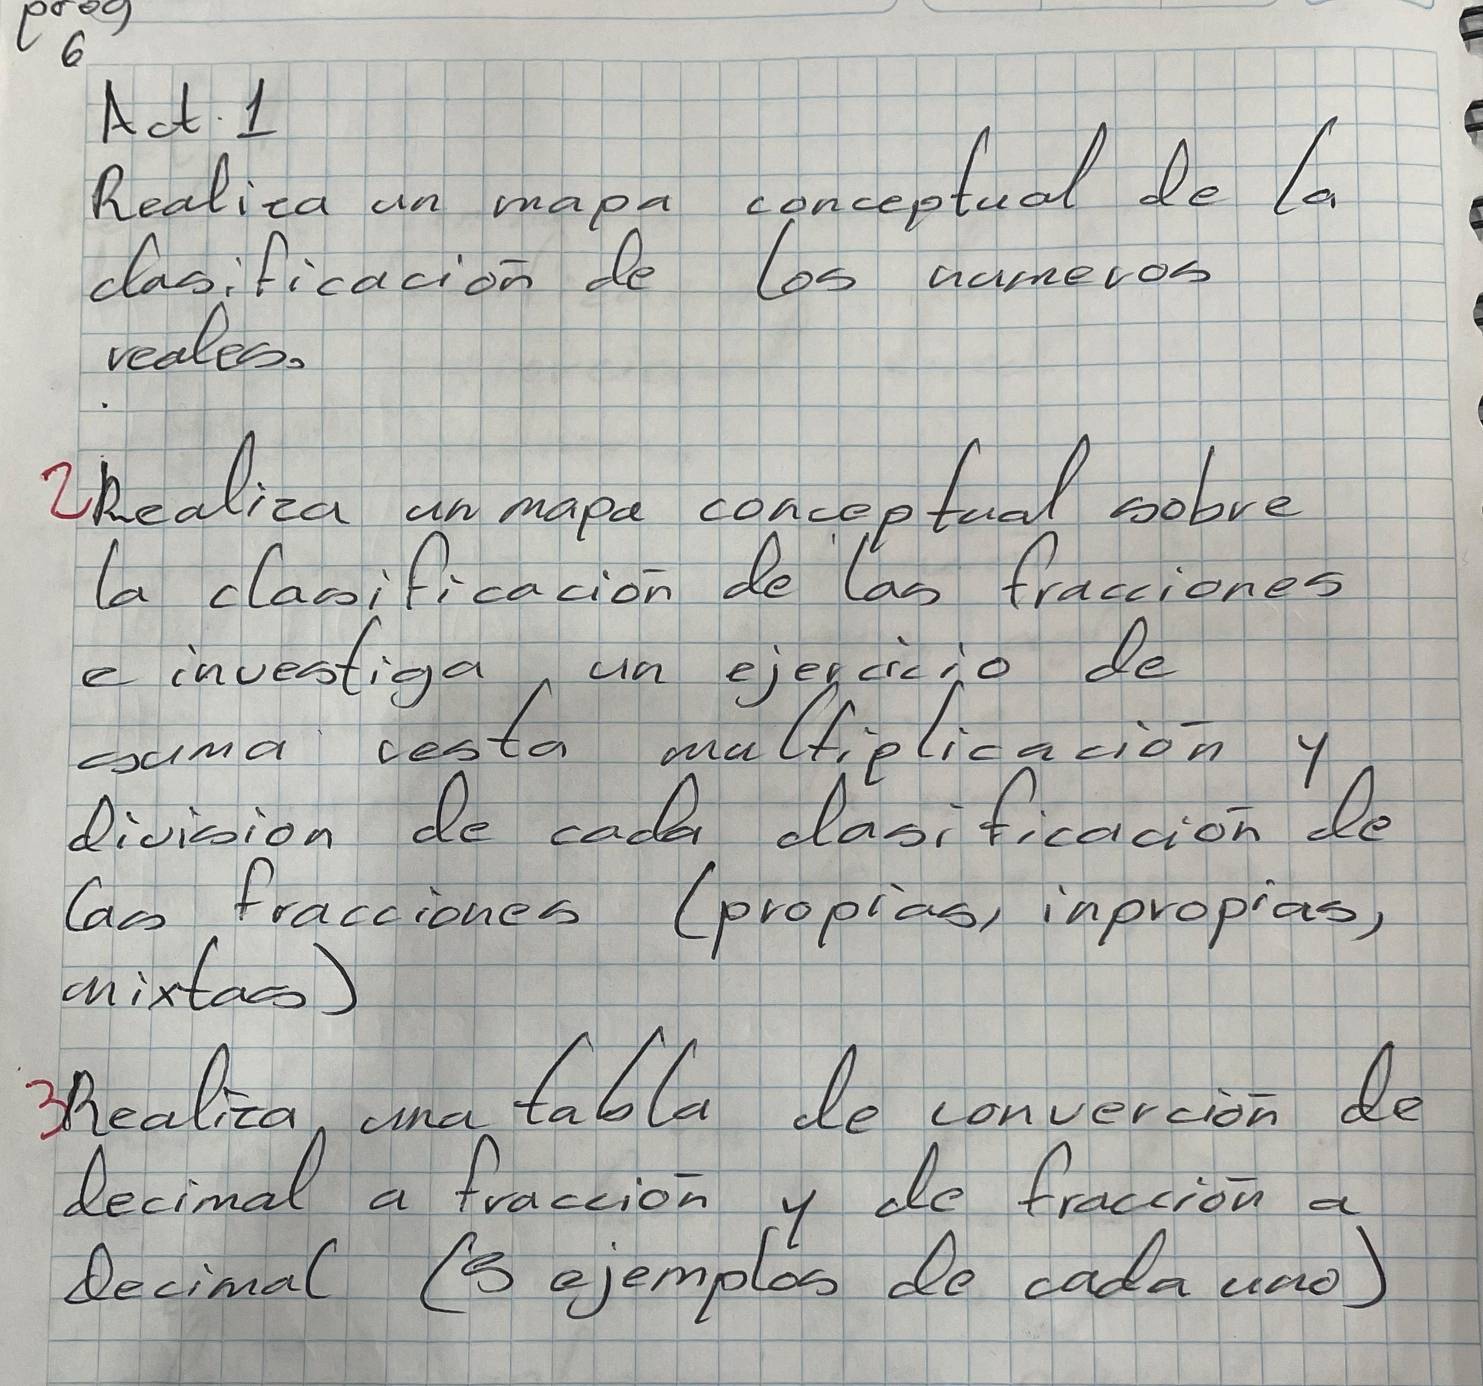 prog
6
Act. 1
Realiza un mapa conceptual de la
clasificación de los numeros
reales.
2 Realiza un mapa conceptual sobre
la clasificación de las fracciones
e investiga un ejercicio de
suma resta multiplicación y
division de cada clasificación de
las fracciones (propias, inpropias,
mixtas)
3 Realiza una tabla de converción de
decimal a fracción y de fracción a
decimal (5 ejemplos de cada uno)